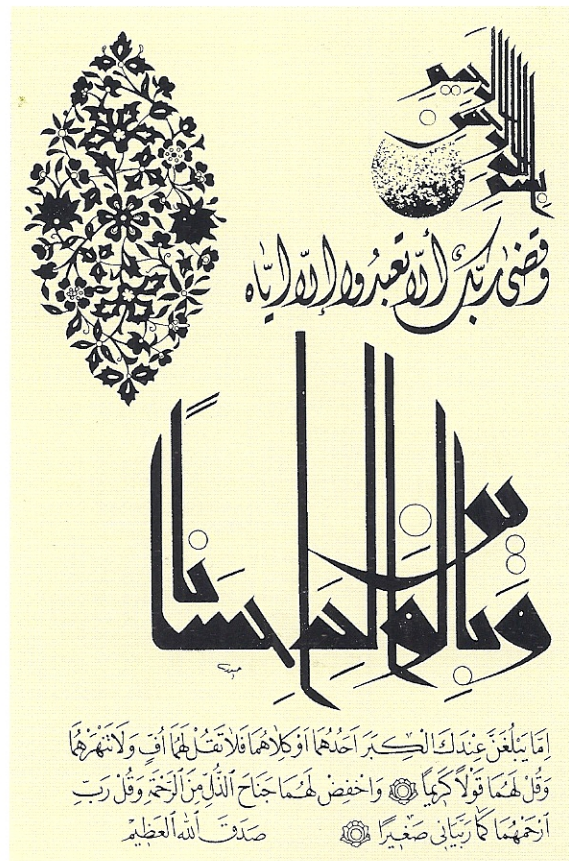 بسم الله الرحمن الرحيم
وَقَضىٰ رَبُّكَ أَلّا تَعبُدُوا إِلّا اِيّاه
وَبِالْوالِدَيْنِ إِحسانا
اِمّا يَبْلُغَنَّ عِنْدَكَ الْكِبَرَ اَحَدُهُما اَوْ كِلاهُما فَلا تَقُلْ لَهُما اُفٍّ وَلا تَنْهَرْهُما
وَقُلْ لَهُما قَوْلاً كَرِيماً وَاخْفِضْ لَهُما جَناحَ الذُّلِّ مِنَ الرَّحْمَةِ وَقُلْ رَبِّ
ارْحَمْهُما كَما رَبَّيانِي صَغِيراً صَدَقَ اللهُ الْعَظِيمُ